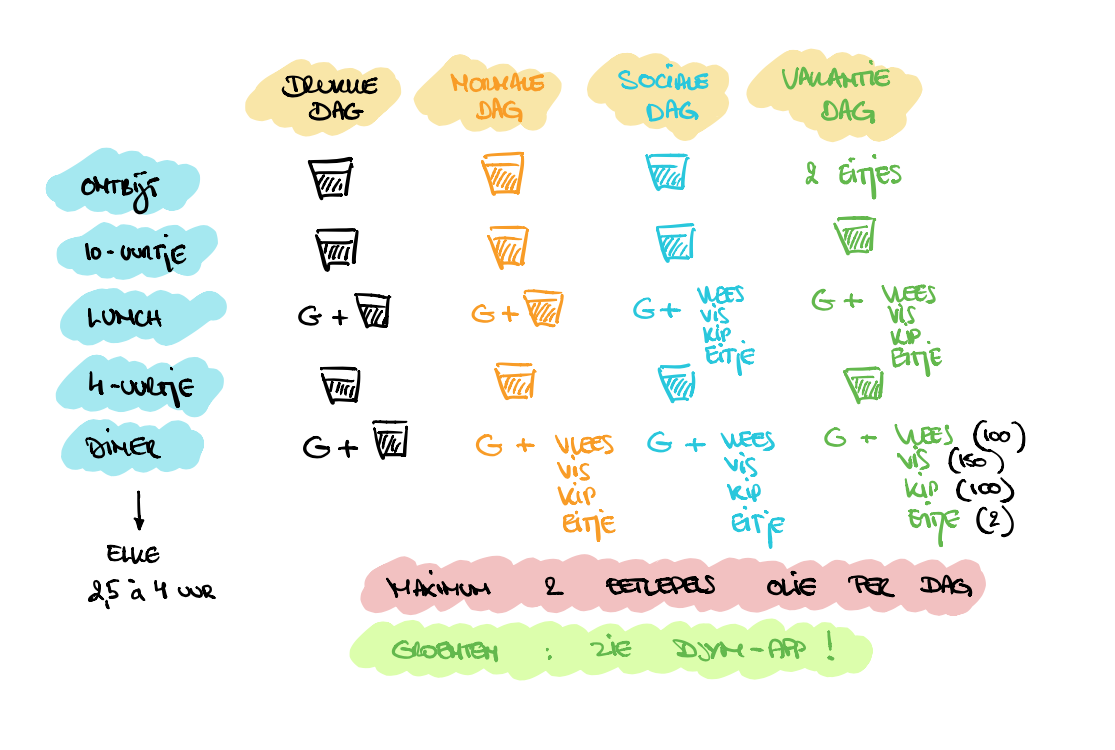 DRUKKE DAG
NORMALE DAG
SOCIALE DAG
VAKANTIE DAG
ONTBIJT
2 EITJES
10-UURTJE
LUNCH
G +
G +
G + VLEES
VIS
KIP
EITJE
G + VLEES
VIS
KIP
EITJE
4-UURTJE
DINER
G +
G + VLEES
VIS
KIP
EITJE
G + VLEES
VIS
KIP
EITJE
G + VLEES (100)
VIS (150)
KIP (100)
EITJE (2)
ELKE
2,5 à 4 UUR
MAXIMUM 2 EETLEPELS OLIE PER DAG
GROENTEN : ZIE DJYM-APP !